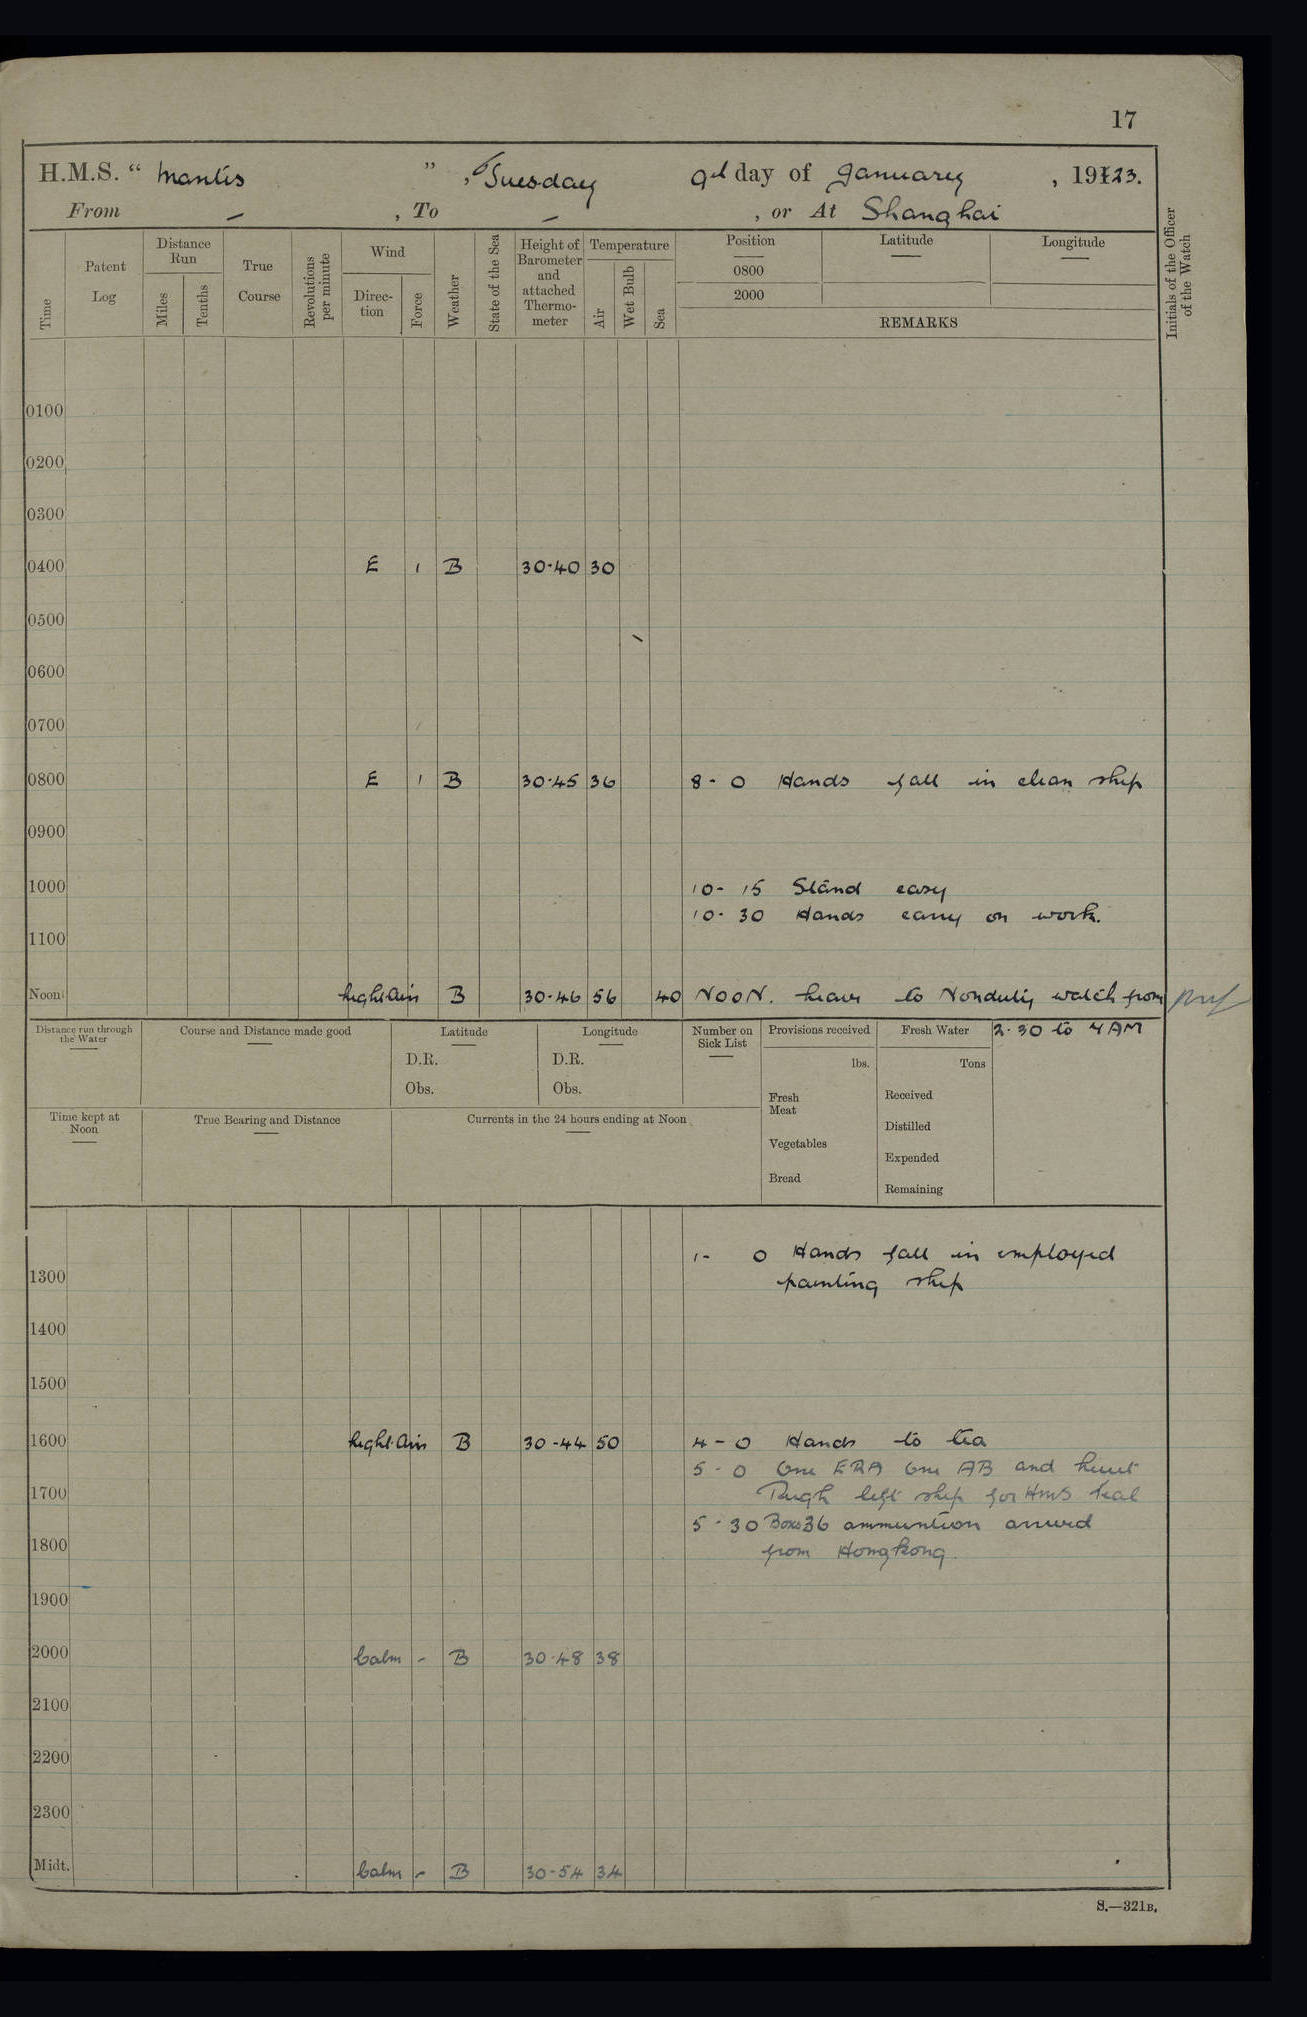 17
H.M.S. “ Mantis ” , Tuesday 9th day of January , 19123.
From – , To – , or At Shanghai
Time
Patent Log
Distance Run
Miles
Tenths
True Course
Revolutions per minute
Wind
Direction
Force
Weather
State of the Sea
Height of Barometer and attached Thermometer
Temperature
Air
Wet Bulb
Sea
Position
0800
2000
Latitude
Longitude
REMARKS
Initials of the Officer of the Watch
0100
0200
0300
0400 E 1 B 30·40 30
0500
0600
0700
0800 E 1 B 30·45 36 8 - 0 Hands fall in clean ship
0900
1000 10- 15 Stand easy
10- 30 Hands carry on work.
1100
Noon light airs B 30-46 56 40 NOON. leave to Nonduty watch from
2·30 to 7 AM
Distance run through the Water
Course and Distance made good
Latitude
D.R.
Obs.
Longitude
D.R.
Obs.
Number on Sick List
Provisions received
lbs.
Fresh Meat
Vegetables
Bread
Fresh Water
Tons
Received
Distilled
Expended
Remaining
Time kept at Noon
True Bearing and Distance
Currents in the 24 hours ending at Noon
1- 0 Hands fall in employed
1300 painting ship
1400
1500
1600 light airs B 30 -44 50 4 - 0 Hands to tea
5 - 0 One ERA One AB and Lieut
1700 Pugh left ship for HMS Teal
5 - 30 Boxs 36 ammuntion arrived
1800 from Hong Kong.
1900
2000 Calm - B 30·48 38
2100
2200
2300
Midt. Calm - B 30-54 34
S.—321B.